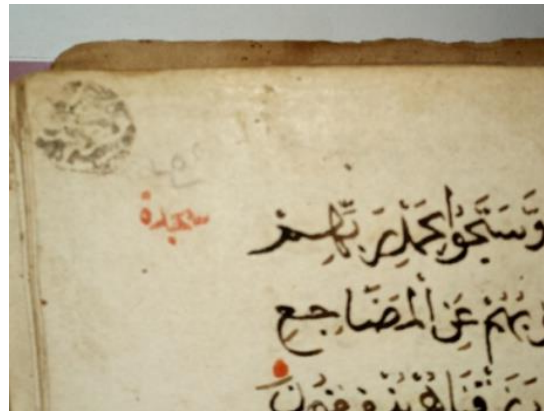 سجدة
وَسَبَّحُوا بِحَمْدِ رَبِّهِمْ
وبُهُمْ عَنِ الْمَضَاجِعِ
رَزَقْنَاهُمْ يُنْفِقُونَ